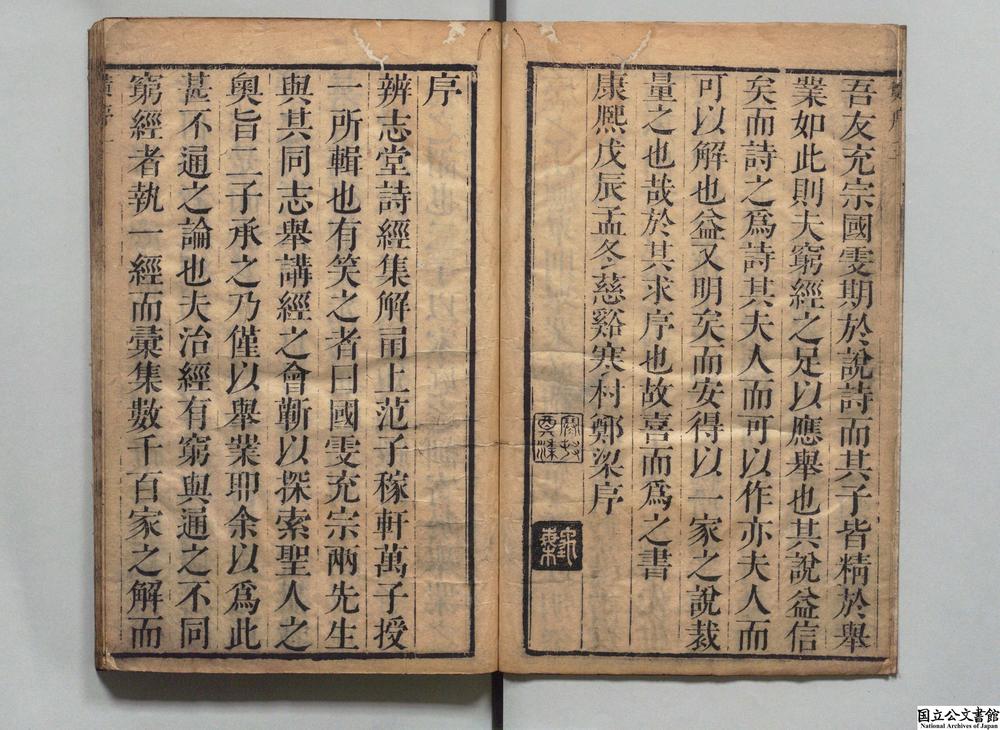 吾友充宗國雯期於說詩而其子皆精於舉
業如此則夫窮經之足以應舉也其說益信
矣而詩之爲詩其夫人而可以作亦夫人而
可以解也益又明矣而安得以一家之說裁
量之也哉於其求序也故喜而爲之書
康熈戊辰孟冬慈谿寒村鄭梁序
序
辨志堂詩經集解甬上范子稼軒萬子授
一所輯也有笑之者曰國雯充宗兩先生
與其同志舉講經之會蘄以探索聖人之
奧旨二子承之乃僅以舉業耶余以爲此
甚不通之論也夫治經有窮與通之不同
窮經者執一經而彚集數千百家之解而
国立公文書館
National Archives of Japan